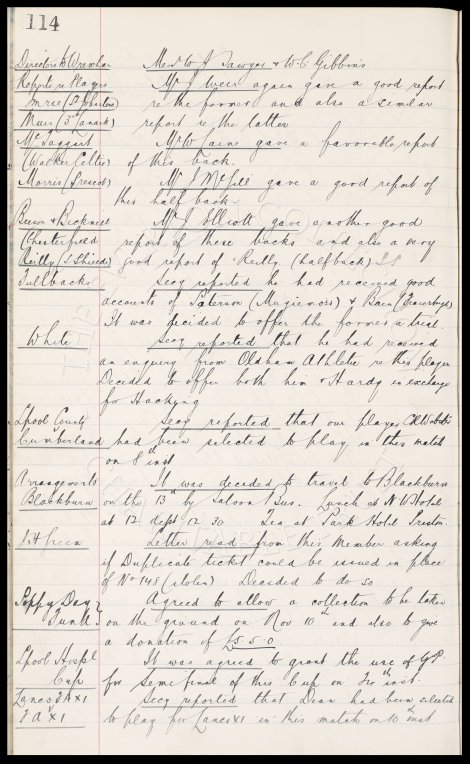 114
Directors to Wrexham Messrs W J Sawyer & W.C. Gibbins
Reports re Players Mr J Weir again gave a good report
Imrie (St Johnstone) re the former and also a similar
Muir (3rd Lanark) report re the latter
McTaggart Mr W Caine gave a favorable report
(Walker Celtic) of this back.
Morris (Prescot) Mr J McGill gave a good report of
this half back
Beeson & Bicknell Mr J Elliott gave another good
(Chesterfield report of these backs and also a very
Reilly (S Shields) good report of Reilly (halfback) S S
Fullbacks Secy reported he had received good
accounts of Paterson (Mugiemoss) & Bain (
It was decided to offer the former a trial
White Secy reported that he had received
an enquiry from Oldham Athletic re this player
Decided to offer both him & Hardy in exchange
for Hacking
Lpool County Secy reported that our player
Cumberland had been selected to play in this match
on 8th inst
Arrangements It was decided to travel to Blackburn
Blackburn on the 13th by Saloon Bus. Lunch at N W Hotel
at 12 dept 12.30 Tea at Park Hotel Preston.
J H Green Letter read from this Member asking
if Duplicate ticket could be issued in place
of No 148 (stolen) Decided to do so
Poppy Day Agreed to allow a collection to be taken
Fund on the ground on Nov 10th and also to give
a donation of £5.5.0
Lpool Hospl It was agreed to grant the use of G.P.
Cup for Semi final of this Cup on inst.
Lancs FA XI Secy reported that Dean had been selected
F A XI to play for Lancs XI in this match on 10th inst